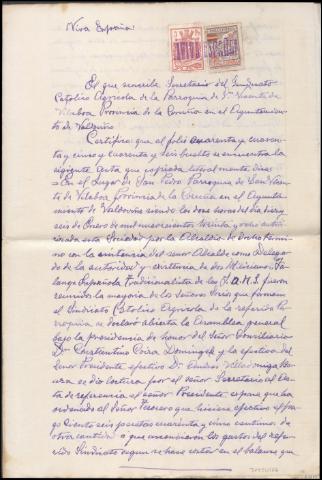 Viva España:
El que suscribe Secretario del Sindicato
Católico Agrícola de la Parroquia de San Vicente de
Vilaboa Provincia de la Coruña en el Ayuntamien-
to de Valdoviño
Certifico: que al folio cuarenta y cuaren-
ta y cinco y cuarenta y seis vuelto se encuentra la
siguiente Acta que copiada literalmente dice:
En el Lugar de San Pedro Parroquia de San Vicen-
te de Vilaboa provincia de la Coruña en el Ayun-
tamiento de Valdoviño siendo las doce horas del día diez y
seis de Enero de mil novecientos treinta y ocho auto-
rizada esta Sociedad por la Alcaldía de dicho térmi-
no con la asistencia del señor Alcalde como Delega-
do de la autoridad y asistencia de dos
Falange Española Tradicionalista de las J.O.N.S. fueron
reunidos la mayoría de los Señores Socios que forman
el Sindicato Católico Agrícola de la referida Pa-
rroquia se declaró abierta la Asamblea general
bajo la presidencia de honor del Señor Consiliario
Dn Constantino Coira Domínguez y la efectiva del
Señor Presidente efectivo Dn Andrés
se dio lectura por el señor Secretario al Acta
de referencia el señor Presidente expone que ha
ordenado al Señor Tesorero que hiciera efectivo el pa-
go ciento seis pesetas cuarenta y cinco centimos de
otra cantidad a que ascendieron los gastos del refe-
rido Sindicato según se hace costar en el balance que